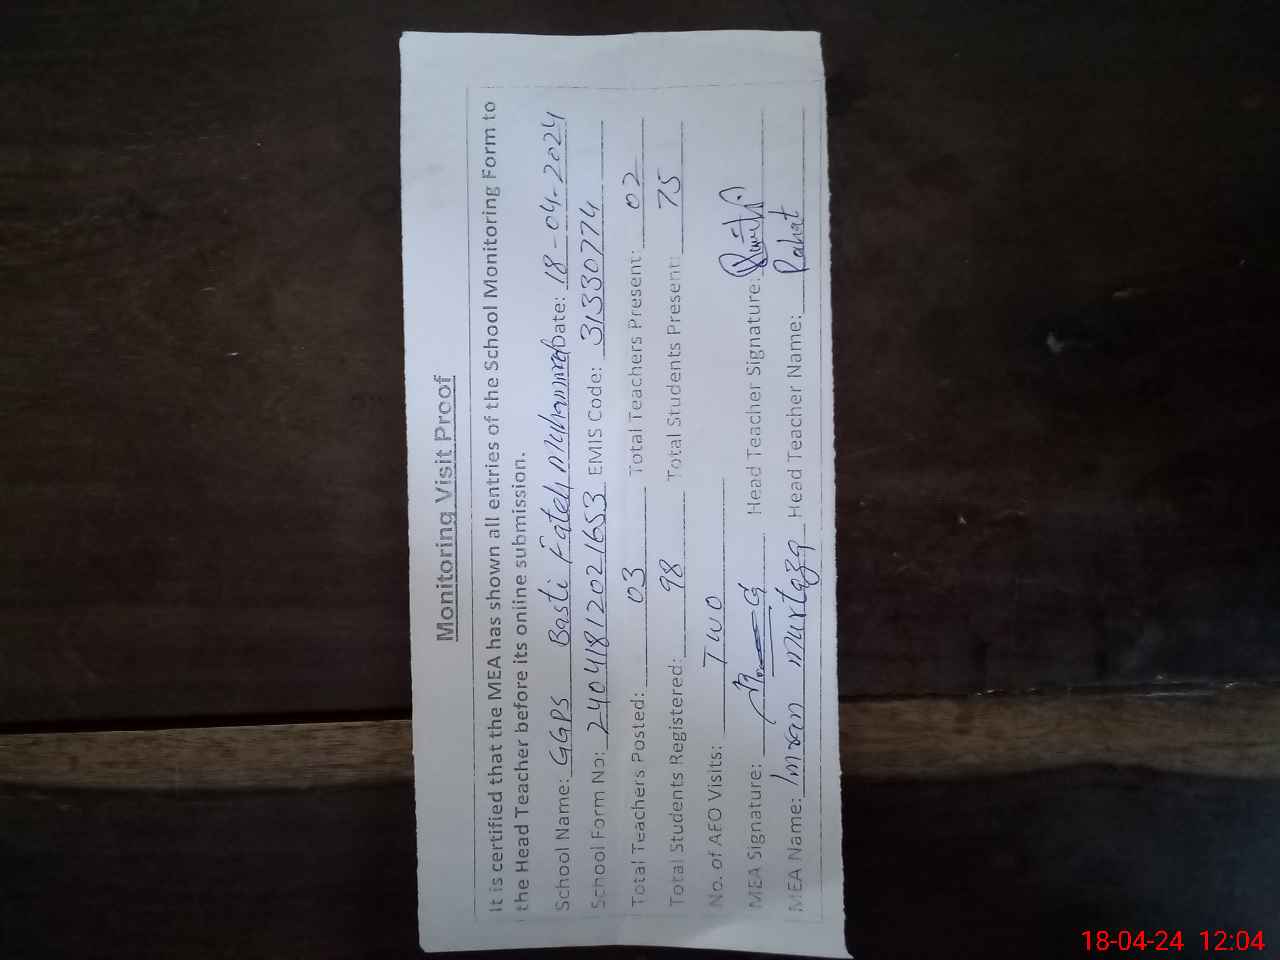 Monitoring Visit Proof
It is certified that the MEA has shown all entries of the School Monitoring Form to
the Head Teacher before its online submission.
School Name: GGPS Basti Fateh Muhammad Date: 18-04-2024
School Form No: 24041812021653 EMIS Code: 31330774
Total Teachers Posted: 03 Total Teachers Present: 02
Total Students Registered: 98 Total Students Present: 75
No. of AEO Visits: TWO
MEA Signature: Head Teacher Signature:
MEA Name: Imran Murtaza Head Teacher Name: Rahat
18-04-24 12:04